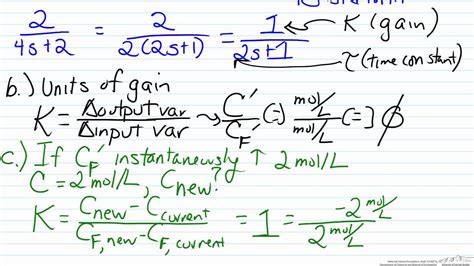 2/(4s+2) = 2/(2(2s+1)) = 1/(2s+1) K (gain)
τ (time constant)
b.) Units of gain
K = Δoutput var/Δinput var ⤳ C'/C_F' (=) (mol/L)/(mol/L) (=) ∅
c.) If C_F' instantaneously ↑ 2 mol/L
C = 2 mol/L, C_new?
K = (C_new - C_current)/(C_F,new - C_F,current) = 1 = (-2 mol/L)/(2 mol/L)